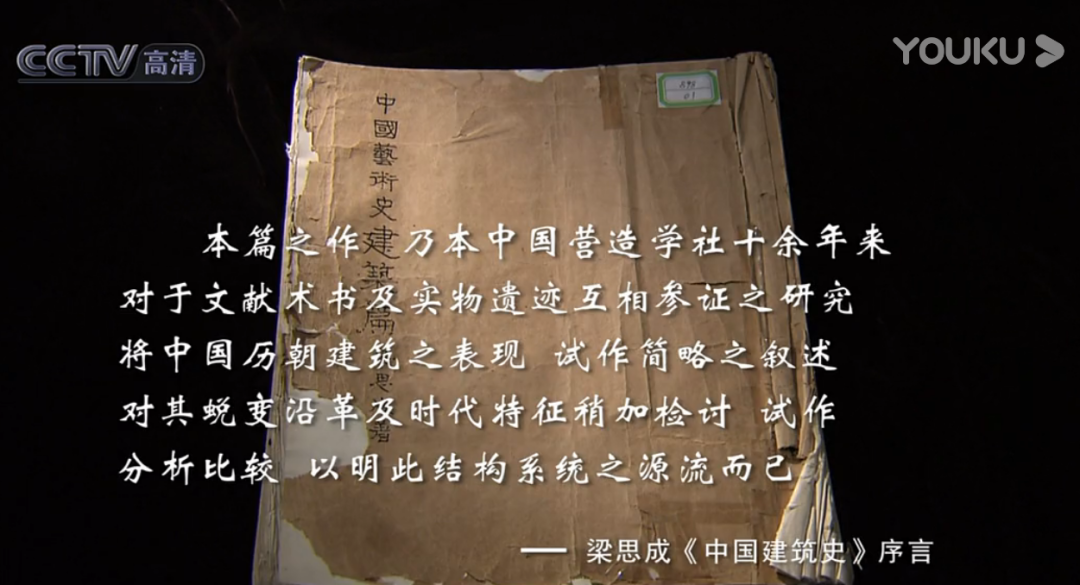 CCTV高清
YOUKU
中國藝術史建築篇
思
著
本篇之作 乃本中国营造学社十余年来
对于文献术书及实物遗迹互相参证之研究
将中国历朝建筑之表现 试作简略之叙述
对其蜕变沿革及时代特征稍加检讨 试作
分析比较 以明此结构系统之源流而已
—— 梁思成《中国建筑史》序言